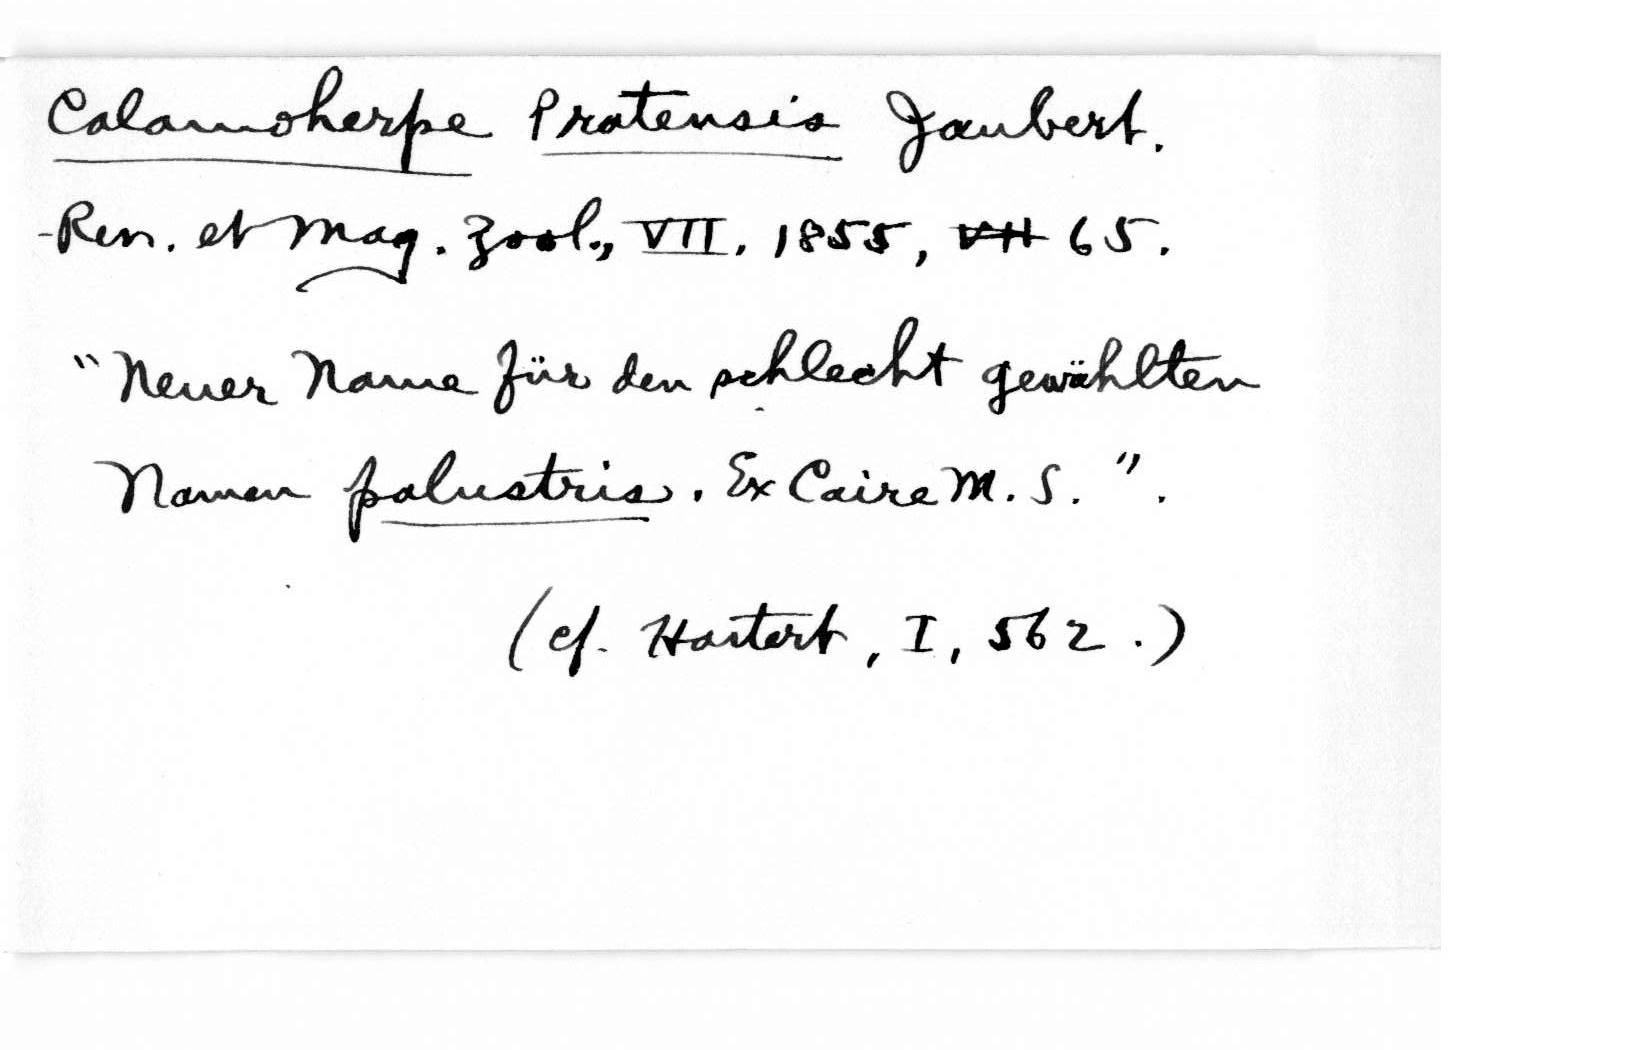 Calamoherpe Pratensis Jaubert.
Rev. et Mag. Zool., VII, 1855, VII 65.
"Neuer Name für den schlecht gewählten
Namen palustris. Ex Caire M.S.".
(cf. Hartert, I, 562.)